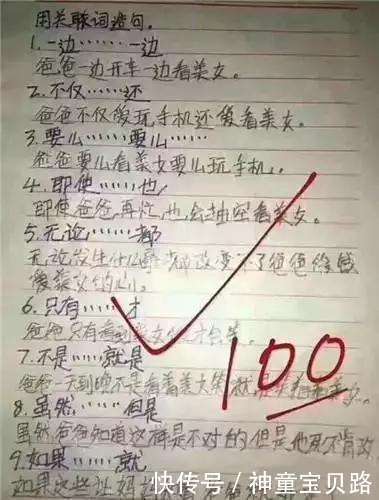 用关联词造句.
1.一边……一边
爸爸一边开车一边看美女。
2.不仅……还
爸爸不仅爱玩手机还爱看美女。
3.要么……要么……
爸爸要么看美女要么玩手机。
4.即使……也
即使爸爸再忙,也会抽空看美女。
5.无论……都
无论发生什么都改变不了爸爸
爱美女的心。
6.只有……才
爸爸只有看到美女 才会笑。
7.不是……就是
爸爸一天到晚不是看着美女笑就是
8.虽然……但是
虽然爸爸知道这样是不对的,但是他死不肯改
9.如果……就
如果这些让妈
100
快传号 / 神童宝贝路